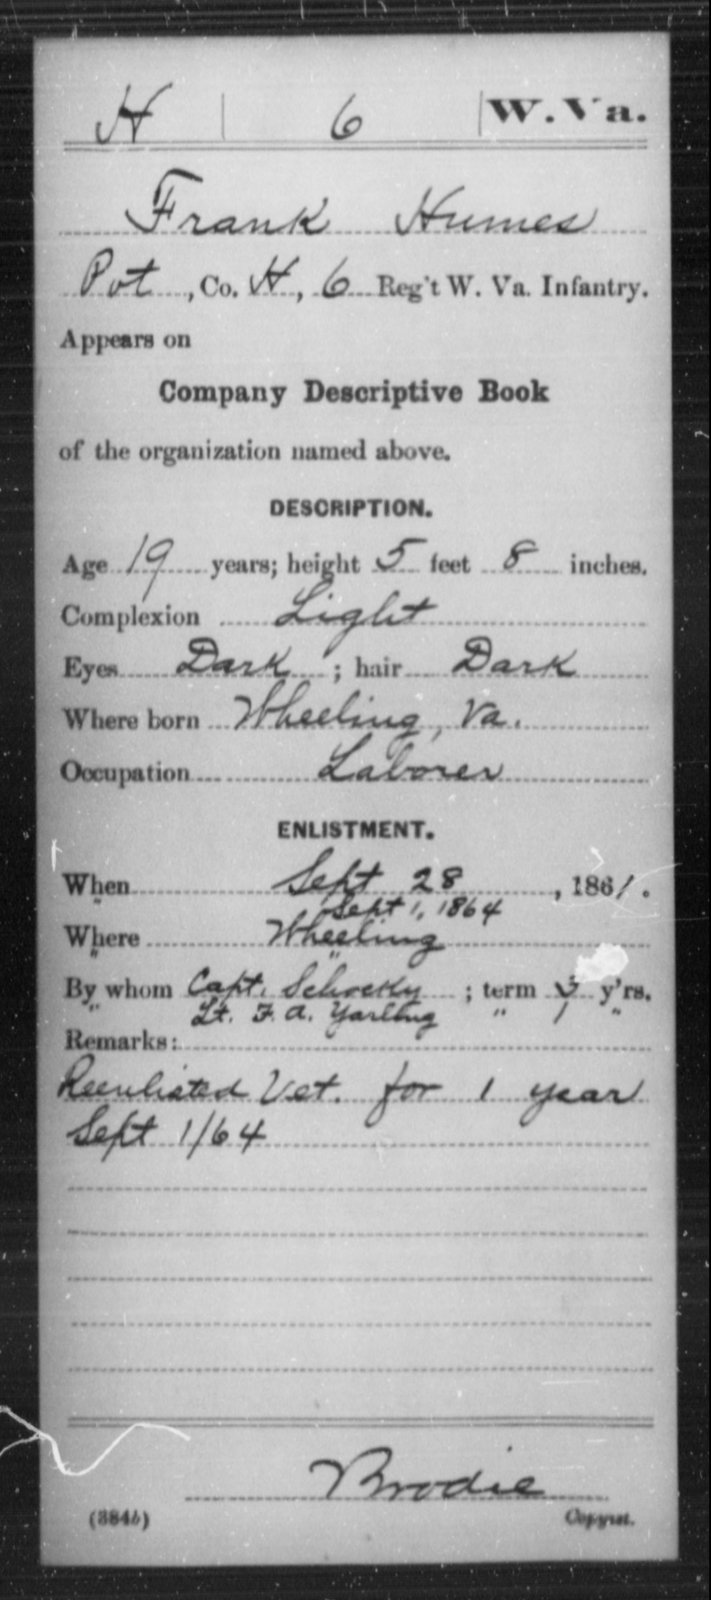 H | 6 | W. Va.
Frank Humes
Pvt, Co. H, 6 Reg't W. Va. Infantry.
Appears on
Company Descriptive Book
of the organization named above.
DESCRIPTION.
Age 19 years; height 5 feet 8 inches.
Complexion Light
Eyes Dark; hair Dark
Where born Wheeling, Va.
Occupation Laborer
ENLISTMENT.
When Sept 28, 1861.
" Sept 1, 1864
Where Wheeling
" "
By whom Capt. ; term 3 y'rs.
" Lt. F. A. Yarling " 1 "
Remarks:
Reenlisted Vet. for 1 year
Sept 1/64
Brodie
(384b) Copyist.